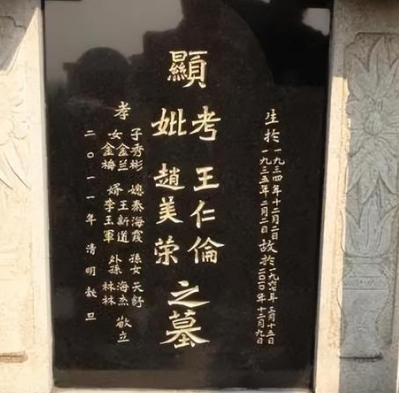 生於
一九三四年十二月二日
一九三五年二月二日
故於
一九六七年二月十五日
二〇一〇年十二月九日
顯
考 王仁倫
妣 趙美荣
之墓
孝
子秀彬 媳秦海霞 孫女天舒
女金兰 婿王新道 外孫海杰
金梅 李玉軍 林林
敬立
二〇一一年 清明穀旦